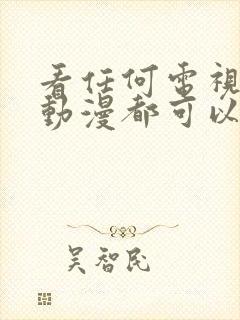 看任何電視
動漫都可以
吳智民